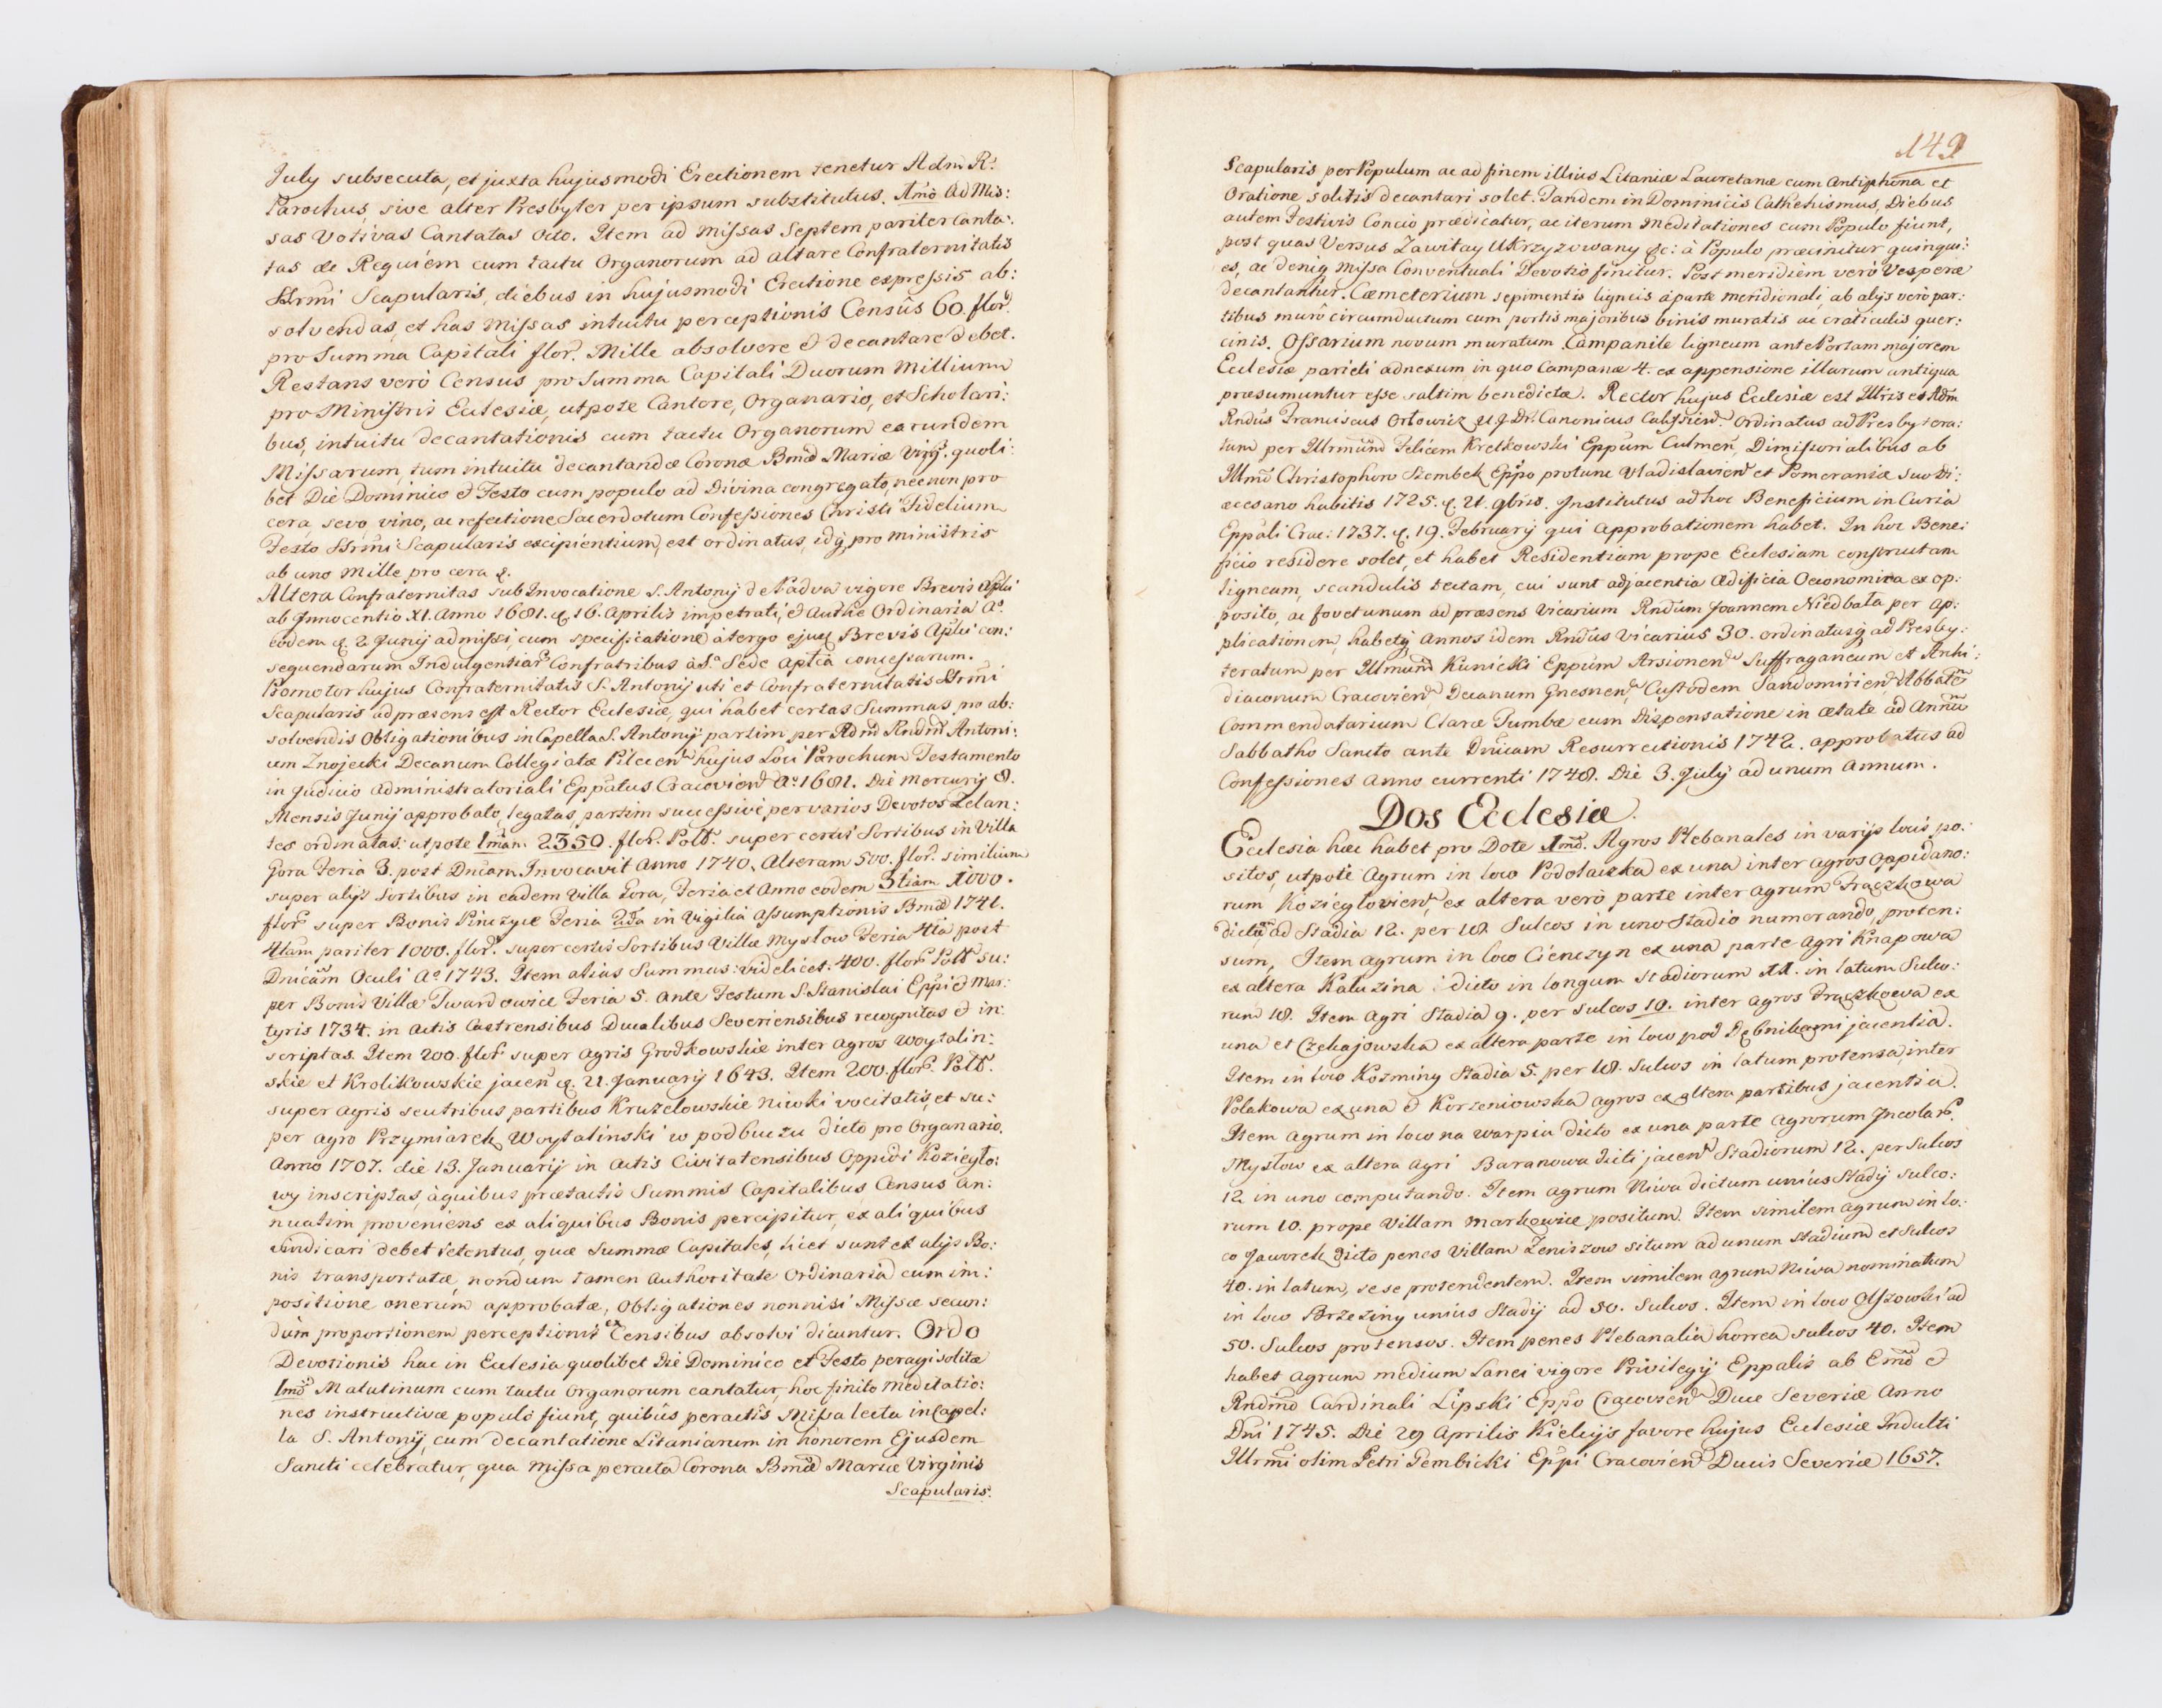 July subsecuta, et juxta hujusmodi Erectionem tenetur Adm R.
Parochus, sive alter Presbyter per ipsum substitutus. Imò ad Mis:
sas Votivas Cantatas Octo. Item ad Missas Septem pariter Canta:
tas de Requiem cum tactu Organorum ad altare Confraternitatis
SSrmi Scapularis, diebus in hujusmodi Erectione expressis ab:
solvendas, et has Missas intuitu perceptionis Censûs 60. flor.
pro Summa Capitali flor. Mille absolvere et decantare debet.
Restans verò Census pro Summa Capitali Duorum Millium
pro Ministris Ecclesiæ, utpote Cantore, Organario, et Scholari:
bus, intuitu decantationis cum tactu Organorum earundem
Missarum, tum intuitu decantandæ Coronæ Bmæ Mariæ Virg. quoli:
bet Die Dominico et Festo cum populo ad Divina congregato, necnon pro
cera, sevo, vino, ac refectione Sacerdotum Confessiones Christi Fidelium
Festo SSrmi Scapularis excipientium, est ordinatus, idq pro ministris
ab uno Mille, pro cera &.
Altera Confraternitas sub Invocatione S. Antonij de Padva vigore Brevis Aplici
ab Innocentio XI. Anno 1681. d. 16. Aprilis impetrati, et Authte Ordinaria Aº.
eodem d. 2 Junij admissi, cum specificatione àtergo ejusd Brevis Aplici con:
sequendarum Indulgentiar Confratribus à S. Sede Aptca concessarum.
Promotor hujus Confraternitatis S. Antonij uti et Confraternitatis SSrmi
Scapularis ad præsens est Rector Ecclesiæ, qui habet certas Summas, pro ab:
solvendis Obligationibus in Capella S. Antonij partim per Admd Rndm Antoni:
um Znojecki Decanum Collegiatæ Pilcien. hujus Loci Parochum Testamento
in Judicio Administratoriali Eppatus Cracovien Aº. 1681. Die Mercurij 8.
Mensis Junij approbato, legatas, partim successivè per varios Devotos Zelan:
tes ordinatas: utpote Imam. 2350. flor. Poll. super certis Sortibus in Villa
Gora Feria 3. post Dncam Invocavit Anno 1740. Alteram 500. flor. similium
super alijs Sortibus in eadem Villa Gora, Feria et Anno eodem 3tiam 1000.
flor. super Bonis Pinczyce Feria 2da in Vigilia Assumptionis Bmæ 1741.
4tam pariter 1000. flor. super certis Sortibus Villæ Mysłow Feria 4ta post
Dnicam Oculi Aº 1743. Item alias Summas: videlicet. 400. flor Poll su:
per Bonis Villæ Twardowice Feria 5. Ante Festum S. Stanislai Eppi et Mar:
tyris 1734. in Actis Castrensibus Ducalibus Severiensibus recognitas et in:
scriptas. Item 200. flor super Agris Grodkowskie inter Agros Woytalin:
skie et Krolikowskie jacen d. 21. January 1643. Item 200. flor. Poll.
super Agris seu tribus partibus Kruzelowskie Niwki vocitatis, et su:
per Agro Przymiarek Woytalinski w podbuczu dicto pro Organario.
Anno 1707. die 13. Januarij in Actis Civitatensibus Oppidi Koziegło:
wy inscriptas, àquibus prætactis Summis Capitalibus Census An:
nuatim proveniens ex aliquibus Bonis percipitur, ex aliquibus
vindicari debet retentus, quæ Summæ Capitales, licet sunt ex alijs Bo:
nis transportatæ, nondum tamen Authoritate Ordinaria cum im:
positione onerum approbatæ, Obligationes nonnisi Missæ secun:
dum proportionem perceptionis ex Censibus absolvi dicuntur. Ordo
Devotionis hac in Ecclesia quolibet Die Dominico et Festo peragi solitæ
Imò Matutinum cum tactu Organorum cantatur, hoc finito Meditatio:
nes instructivæ populò fiunt, quibûs peractîs Missa lecta in Capel:
la S. Antonij, cum decantatione Litaniarum in honorem Ejusdem
Sancti celebratur, qua Missa peracta Corona Bmæ Mariæ Virginis
Scapularis.
149
Scapularis per Populum ac ad finem illius Litaniæ Lauretanæ cum Antiphona et
Oratione solitis decantari solet. Tandem in Dominicis Cathechismus, Diebus
autem Festivis Concio prædicatur, ac iterum Meditationes cum Populo fiunt,
post quas Versus Zawitay Ukrzyzowany &c: à Populo præcinitur quinqui:
es, ac deniq Missa Conventuali Devotio finitur. Post meridiem verò Vesperæ
decantantur. Cæmeterium sepimentis ligneis àparte meridionali, ab alijs verò par:
tibus murô circumductum cum portis majoribus binis muratis ac craticulis quer:
cinis. Ossarium novum muratum. Campanile ligneum ante Portam majorem
Ecclesiæ parieti adnexum in quo Campanæ 4. ex appensione illarum antiqua
præsumuntur esse saltim benedictæ. Rector hujus Ecclesiæ est Illris et Adm
Rndus Franciscus Orłowicz U.J.Dr. Canonicus Calissien. Ordinatus ad Presbytera:
tum per Illrmum Felicem Kretkowski Eppum Culmen, Dimissorialibus ab
Illmo Christophoro Szembek Eppo protunc Vladislavien et Pomeraniæ suo Di:
æcesano habitis 1725. d. 21. 9bris. Institutus ad hoc Beneficium in Curia
Eppali Crac: 1737. d. 19. February qui Approbationem habet. In hoc Bene:
ficio residere solet, et habet Residentiam prope Ecclesiam constructam
ligneam, scandulis tectam, cui sunt adjacentia Ædificia Oeconomica ex op:
posito, ac fovet unum ad præsens Vicarium Rndum Joannem Niedbała per Ap:
plicationem, habetq Annos idem Rndus Vicarius 30. ordinatusq ad Presby:
teratum per Illmum Kunicki Eppum Arsionen. Suffraganeum et Archi:
diaconum Cracovien, Decanum Gnesnen, Custodem Sandomirien, Abbatem
Commendatarium Claræ Tumbæ cum Dispensatione in ætate ad Annum
Sabbatho Sancto ante Dnicam Resurrectionis 1742. approbatus ad
Confessiones Anno currenti 1748. Die 3. July ad unum Annum.
Dos Ecclesiæ.
Ecclesia hæc habet pro Dote Imò. Agros Plebanales in varijs locis po:
sitos, utpote Agrum in loco Podołaczka ex una inter Agros Oppidano:
rum Koziegłovien, ex altera verò parte inter Agrum Frączkowa
dictum ad Stadia 12. per 18. Sulcos in uno Stadio numerando, proten:
sum, Item Agrum in loco Cienczyn ex una parte Agri Knapowa
ex altera Kaluzina dicto in longum Stadiorum 11. in latum Sulco:
rum 18. Item Agri Stadia 9. per Sulcos 10. inter Agros Frączkowa ex
una et Czekajowska ex altera parte in loco pod Dębnikami jacentia.
Item in loco Kozminy Stadia 5. per 18. Sulcos in latum protensa, inter
Polakowa ex una et Korzeniowska Agros ex altera partibus jacentia.
Item Agrum in loco na Warpiu dicto ex una parte Agrorum Incolar.
Mysłow ex altera Agri Baranowa dicti jacen Stadiorum 12. per Sulcos
12 in uno computando. Item Agrum Niwa dictum unius Stadij Sulco:
rum 10. prope Villam Markowice positum. Item similem Agrum in lo:
co Jaworek dicto penes Villam Zeniszow situm ad unum Stadium et Sulcos
40. in latum, sese protendentem. Item similem Agrum Niwa nominatum
in loco Brzeziny unius Stadij ad 50. Sulcos. Item in loco Olszowki ad
50. Sulcos protensos. Item penes Plebanalia horrea Sulcos 40. Item
habet Agrum medium Lanei vigore Privilegij Eppalis ab Emo et
Rndmo Cardinali Lipski Eppo Cracovien Duce Severiæ Anno
Dni 1745. Die 29 Aprilis Kielcijs favore hujus Ecclesiæ Indulti
Illrmi olim Petri Gembicki Eppi Cracovien Ducis Severiæ 1657.